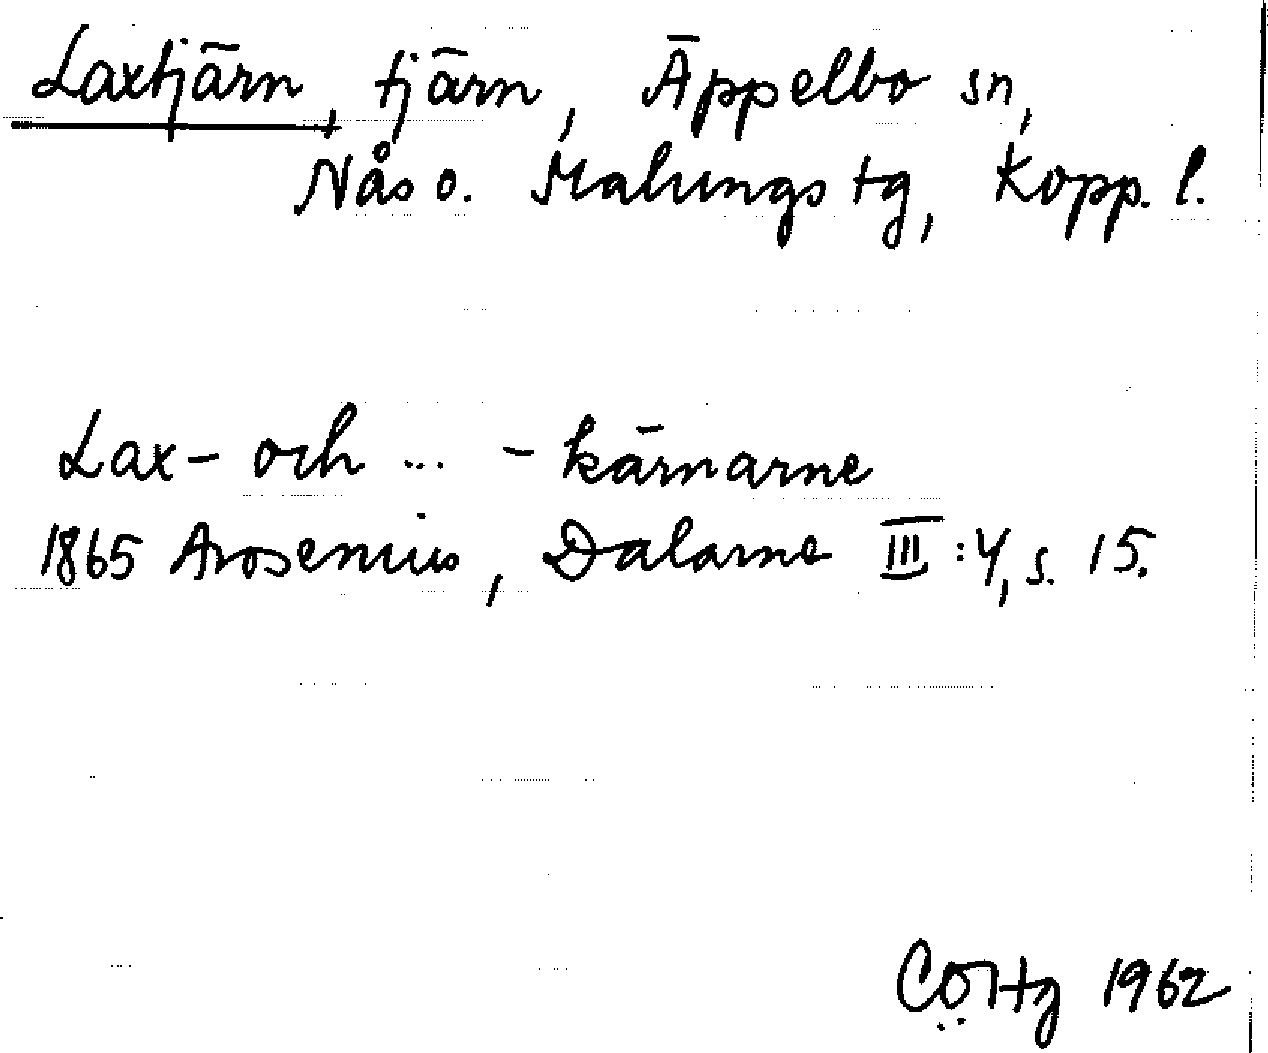 Laxtjärn, tjärn, Äppelbo sn,
Nås o. Malungs tg, Kopp. l.
Lax- och ... -kärnarne
1865 Arosenius, Dalarne III:4, s. 15.
1962